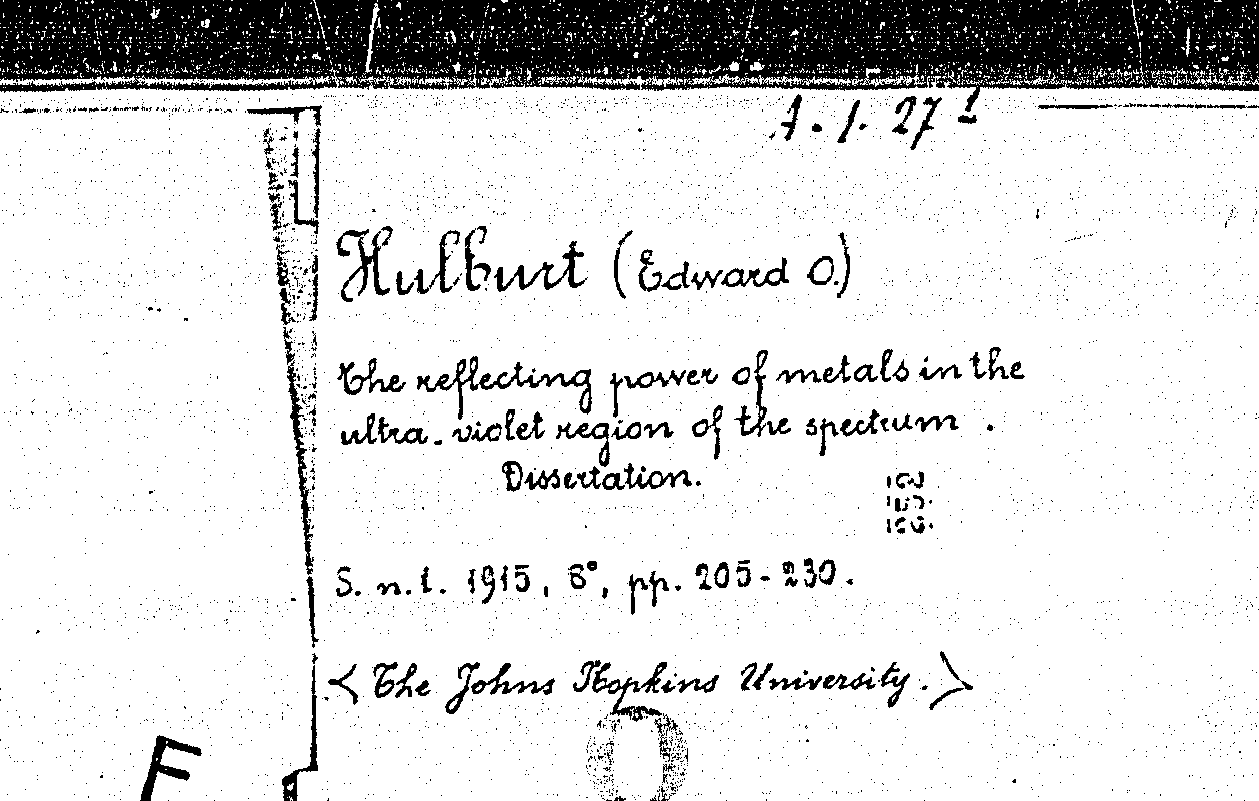 A. 1. 27 1
Hulburt (Edward O.)
The reflecting power of metals in the
ultra-violet region of the spectrum.
Dissertation.
S. n. t. 1915, 8°, pp. 205-230.
<The Johns Hopkins University.>
F